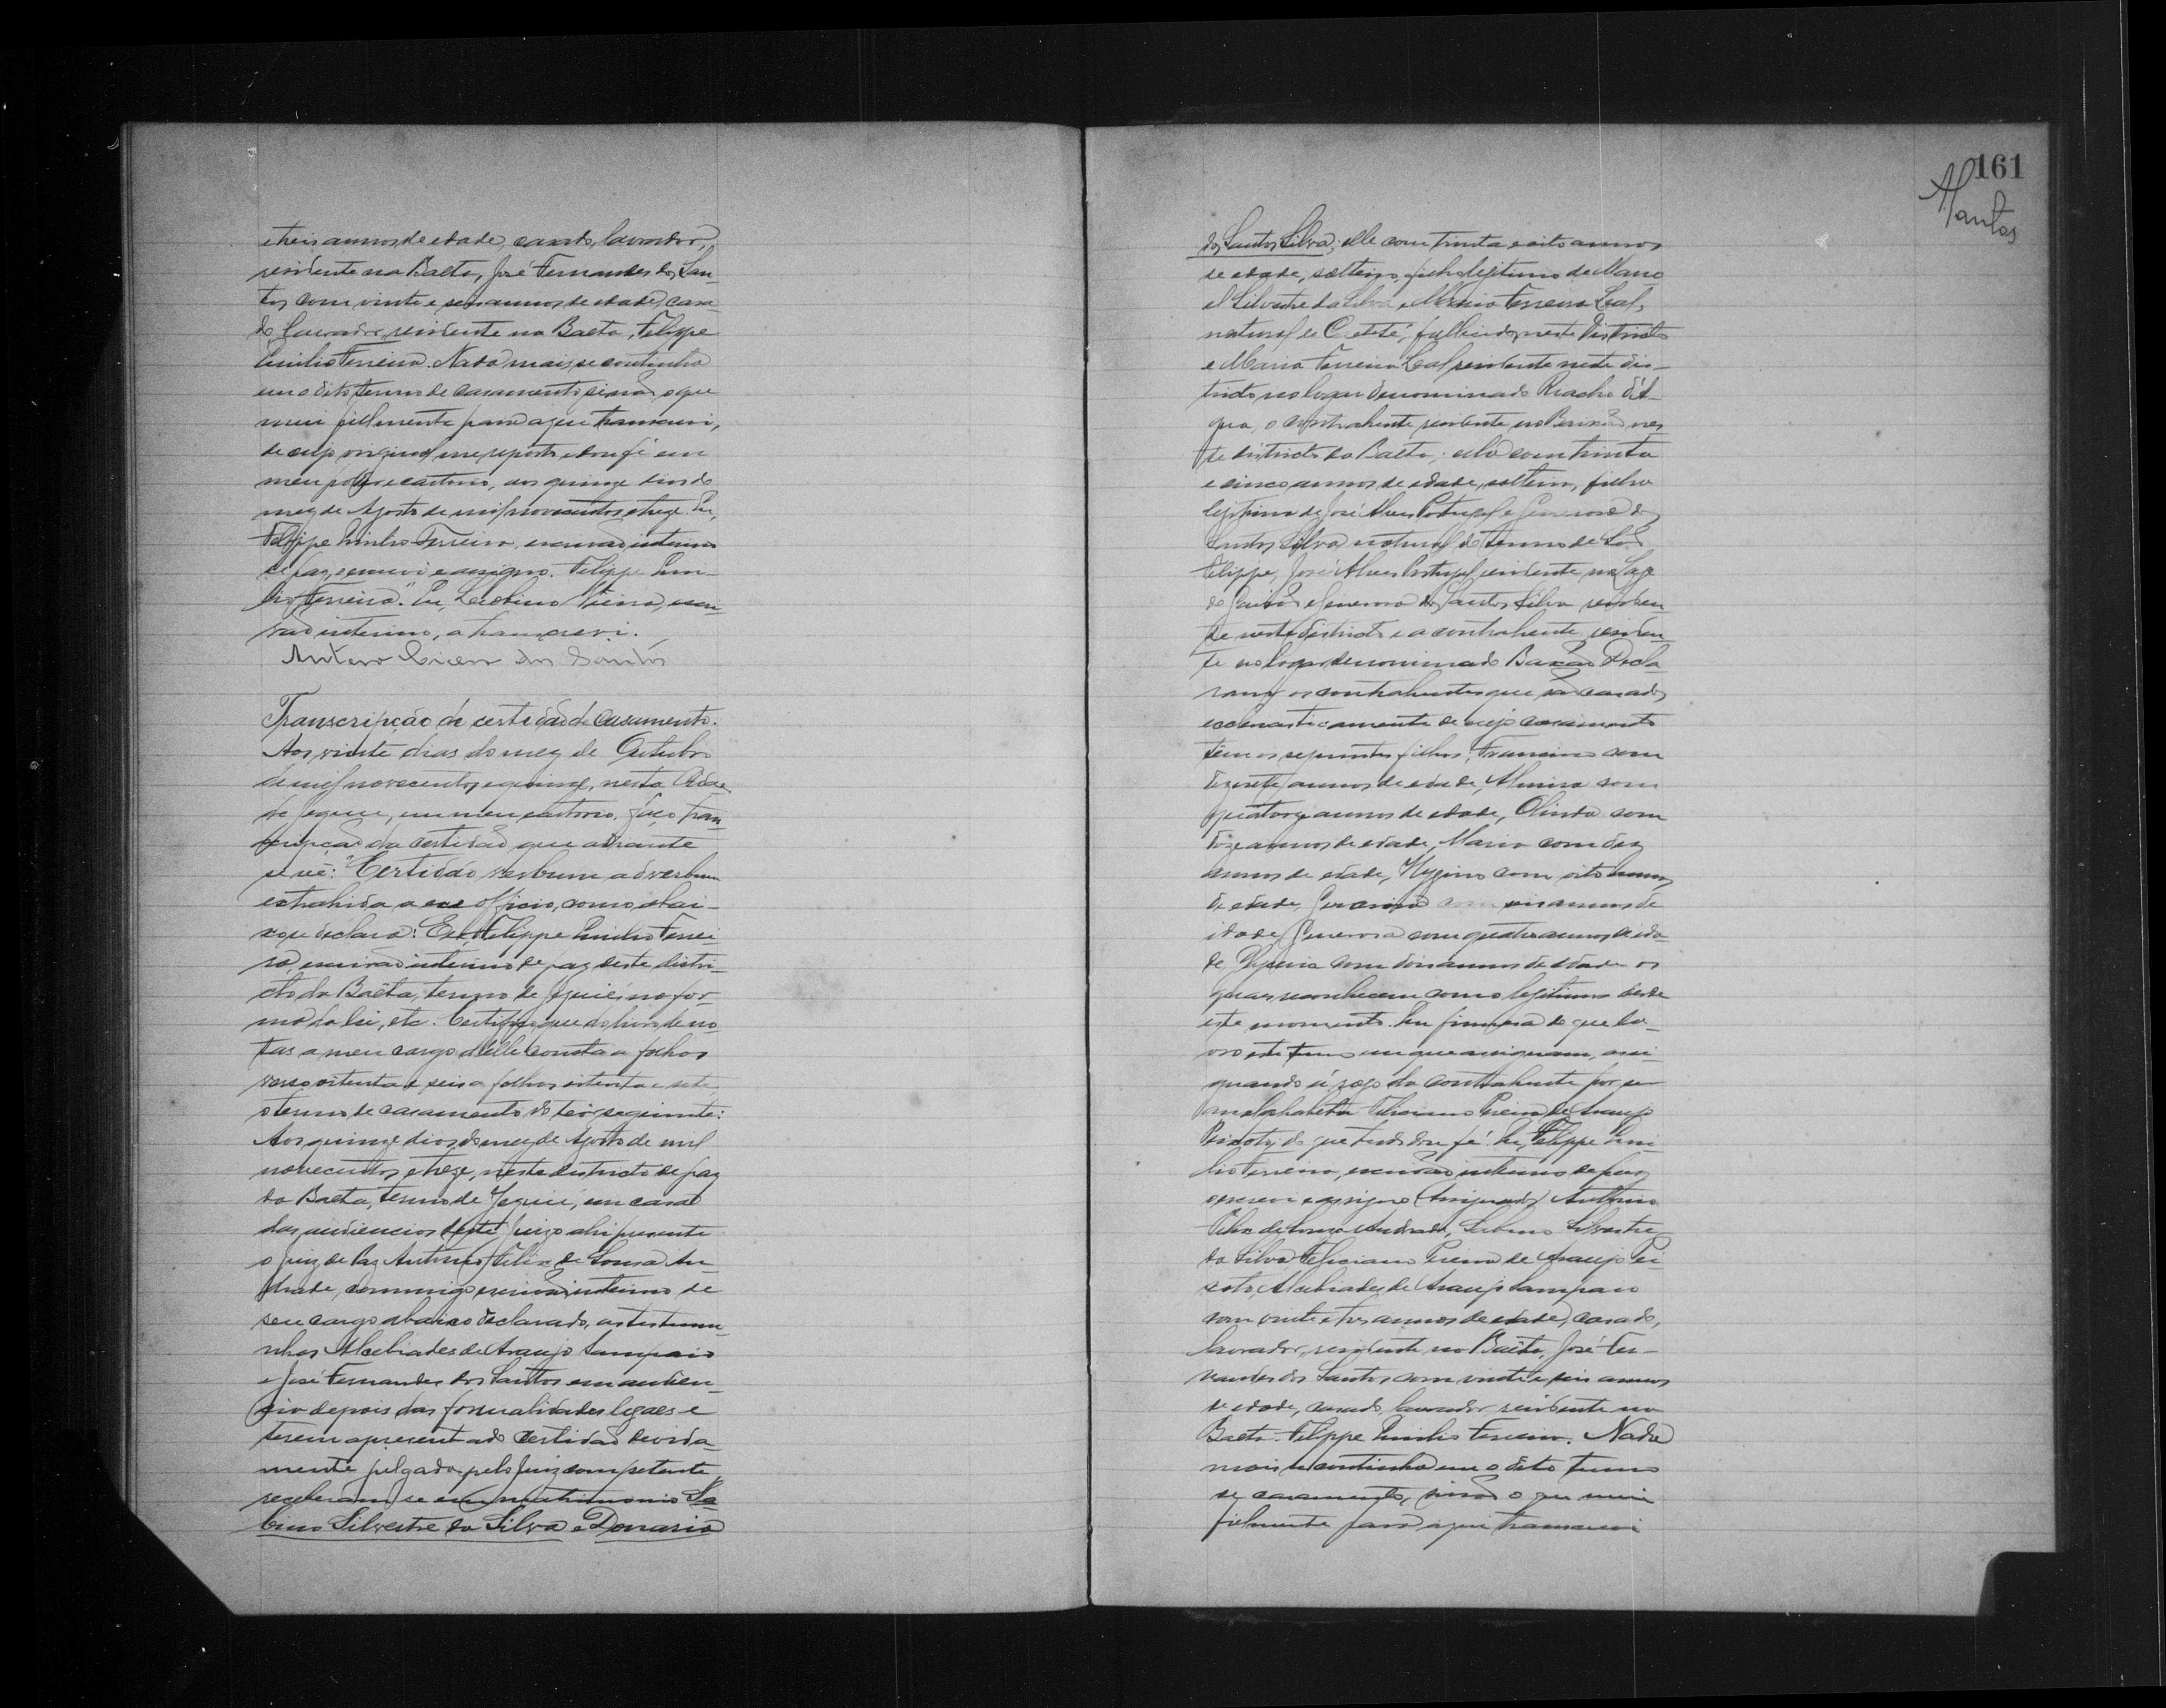 e treis annos de edade, casado, lavrador,
residente na Baeta, José Fernandes dos San-
tos com vinte e seis annos de edade, casa-
do lavrador, residente na Baeta, Felippe
Emilio Ferreira. Nada mais se continha
em o dito termo de casamento sinão o que
mui fielmente para aqui transcrevi,
de cujo original me reporto e dou fé em
meu poder e cartorio, aos quinze dias do
mez de Agosto de mil novecentos e treze. Eu,
Felippe Emilio Ferreira, escrivão interino
de paz, escrevi e assigno. Felippe Emi-
lio Ferreira." Eu, Leolino Vieira, escri-
vão interino, a transcrevi.
Antero Cicero dos Santos
Transcripção de certidão de Casamento.
Aos vinte dias do mez de Outubro
de mil novecentos e quinze, nesta Cidade
de Jequié, em meu cartorio, faço trans-
cripção da certidão que adiante
se vê: "Certidão verbum ad verbum
extrahida a ex officio, como abai-
xo se declara: Eu, Felippe Emilio Ferrei-
ra, escrivão interino de paz deste distri-
cto da Baêta, termo de Jequié, na for-
ma da lei, etc. Certifico que do livro de no-
tas a meu cargo delle consta a folhas
verso oitenta e seis a folhas oitenta e sete
o termo de casamento do teor seguinte:
Aos quinze dias do mez de Agosto de mil
novecentos e treze, neste districto de paz
da Baeta, termo de Jequié, em casa
das audiencias deste Juizo ahi presente
o Juiz de Paz Antonio Felix de Sousa An-
drade, commigo escrivão interino de
seu cargo abaixo declarado, as testemu-
nhas Alcebiades de Araujo Sampaio
e José Fernandes dos Santos em audien-
cia depois das formalidades legaes e
terem apresentado certidão devida-
mente julgada pelo Juiz competente,
receberam-se em matrimonio Sa-
bino Silvestre da Silva e Donaria
161
dos Santos Silva; elle com trinta e oito annos
de edade, solteiro, filho legitimo de Mano-
el Silvestre da Silva e Maria Ferreira Leal,
natural de Caeteté, fallecido neste Districto
e Maria Ferreira Leal residente neste dis-
tricto no logar denominado Riacho d'A-
gua, o contrahente residente no Baixão nes-
te districto da Baeta; ella com trinta
e cinco annos de edade, solteira, filha
legitima de José Alves Portugal e Generosa dos
Santos Silva natural do termo de São
Felippe, José Alves Portugal residente na Lage
do Gavião e Generosa dos Santos Silva residen-
te neste districto e a contrahente residen-
te no logar denominado Baixão Decla-
raram os contrahentes que são casados
ecclesiasticamente de cujo casamento
têm os seguintes filhos: Francisco com
dezesete annos de edade, Almira com
quatorze annos de edade, Olinda com
doze annos de edade, Maria com dez
annos de edade, Hygino com oito annos
de edade, com seis annos de
idade, Generosa com quatro annos de ida-
de, com dois annos de edade os
quaes reconhecem como legitimos desde
este momento. Em firmeza do que la-
vro este termo em que assignam, assi-
gnando á rogo da contrahente por ser
analphabeta Feliciano Pereira de Araujo
Peixoto, do que tudo dou fé. Eu, Felippe Emi-
lio Ferreira, escrivão interino de paz
escrevi e assigno (Assignados) Antonio
Felix de Souza Andrade, Sabino Silvestre
da Silva, Feliciano Pereira de Araujo Pei-
xoto, Alcebiades de Araujo Sampaio
com vinte e tres annos de edade, casado,
lavrador, residente na Baêta, José Fer-
nandes dos Santos com vinte e seis annos
de edade, casado, lavrador residente na
Baeta. Felippe Emilio Ferreira. Nada
mais se continha em o dito termo
de casamento, sinão o que mui
fielmente para aqui transcrevi